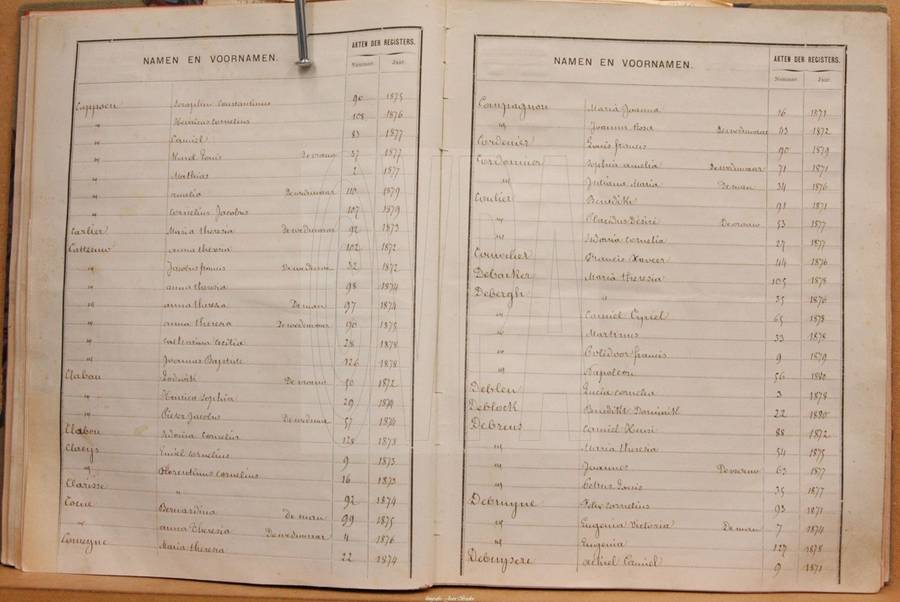 NAMEN EN VOORNAMEN.
AKTEN DER REGISTERS.
Nummer. Jaar.
Cappoen Seraphin Constantinus 90 1875
" Henricus Cornelius 108 1876
" Camiel 83 1877
" Karel Louis De vrouw 37 1877
" Mathias 2 1877
" Amelia De weduwaar 110 1879
" Cornelius Jacobus 107 1879
Carlier Maria Theresia De weduwaar 92 1873
Catteeuw Anna Theresia 102 1872
" Jacobus francis De weduwe 32 1872
" anna theresia 98 1874
" anna theresa De man 97 1874
" anna theresia De weduwaar 90 1875
" Catharina Cecilia 28 1878
" Joannes Baptiste 126 1878
Clabau Lodewik De vrouw 50 1872
" Henrica Sophia 29 1879
" Pieter Jacobus De weduwe 57 1874
Clabou Sidonia Cornelia 128 1878
Claeijs Emiel Cornelius 9 1873
" Florentinus Cornelius 16 1873
Clarisse " 92 1874
Coene Bernardina De man 99 1875
" Anna Theresia De weduwaar 4 1876
Comeyne Maria Theresia 22 1874
NAMEN EN VOORNAMEN.
AKTEN DER REGISTERS.
Nummer. Jaar.
Compagnon Maria Joanna 16 1871
" Joanna Rosa De weduwaar 43 1872
Cordenier Louis francis 90 1879
Cordonnier Sophia Amelia De weduwaar 71 1871
" Juliana Maria De man 34 1876
Coulier Benedikt 91 1871
" Placidus Désiré De vrouw 53 1877
" Sidonia Cornelia 27 1877
Couvelier Francis Xaveer 44 1876
Debacker Maria Theresia 105 1878
Debergh " 35 1876
" Camiel Cyriel 65 1878
" Martinus 33 1878
" Polidoor francis 9 1879
" Napoleon 56 1880
Deblen Lucia Cornelia 3 1878
Deblock Benedikt Dominik 22 1880
Debreus Camiel Henri 88 1872
" Maria theresia 54 1875
" Joannes De vrouw 63 1877
" Petrus Louis 35 1877
Debruyne Felix Cornelius 93 1871
" Eugenia Victoria De man 7 1874
" Eugenia 127 1878
Debuysere Achiel Camiel 9 1871